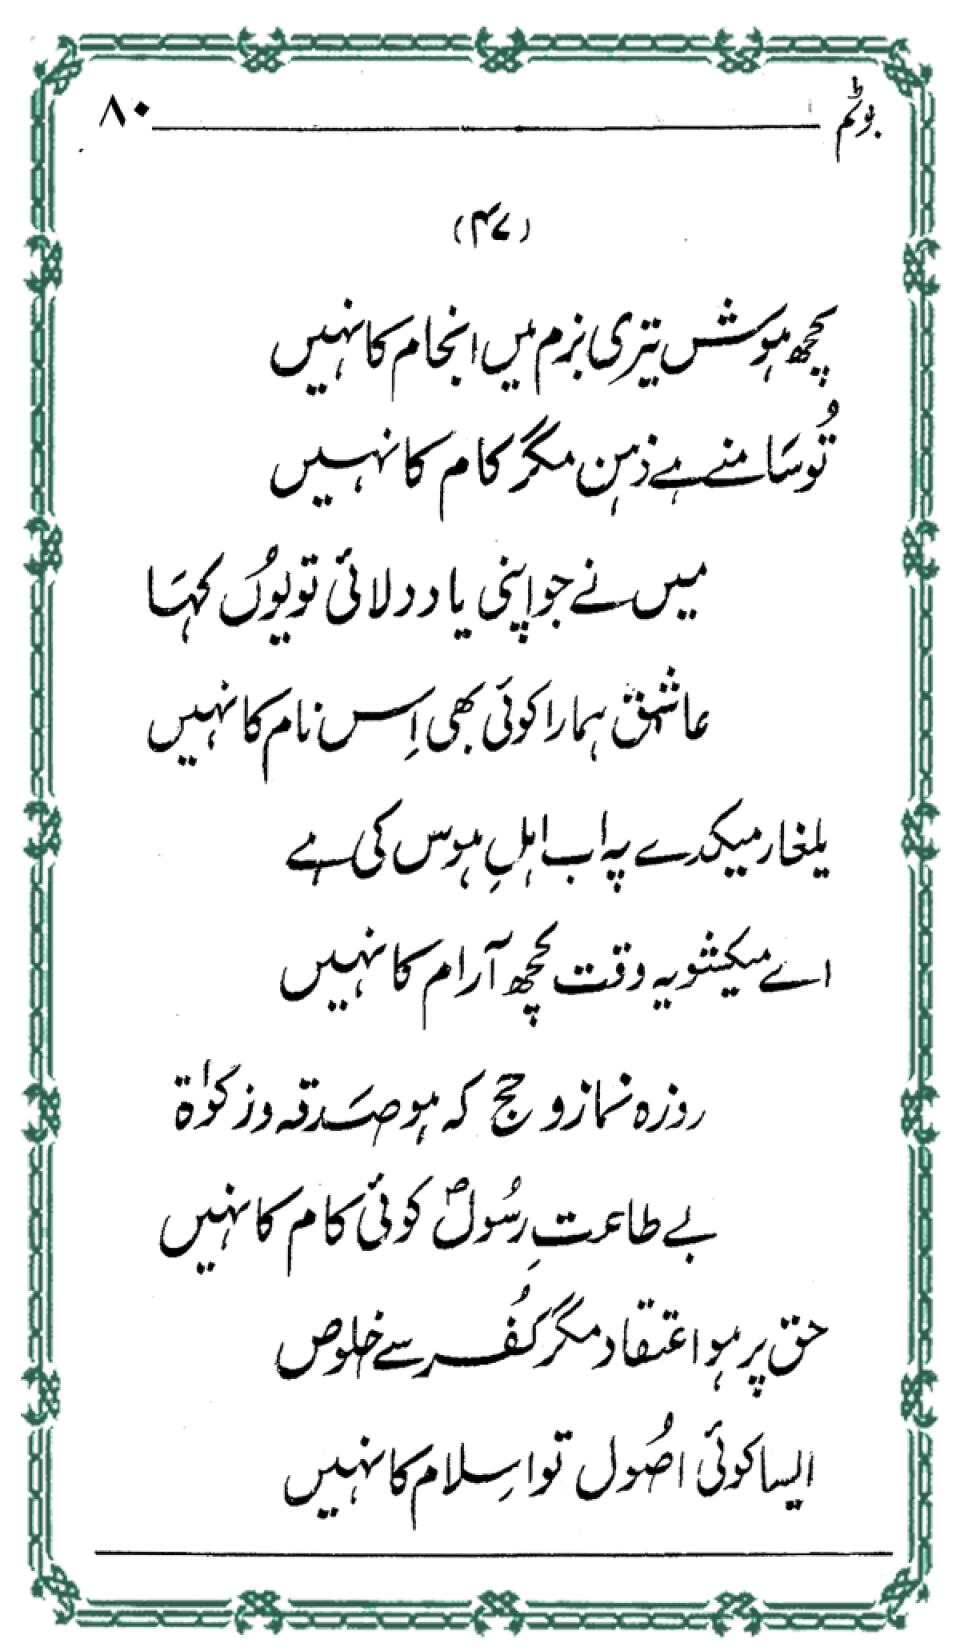 بوتم ۸۰
(۴۷)
کچھ ہوش تیری بزم میں انجام کا نہیں
تُو سَامنے ہے ذہن مگر کام کا نہیں
میں نے جو اپنی یاد دلائی تو یوُں کہَا
عاشق ہمارا کوئی بھی اِس نام کا نہیں
یلغار میکدے پہ اب اہلِ ہوس کی ہے
اے میکشو یہ وقت کچھ آرام کا نہیں
روزہ نماز و حج کہ ہو صَدقہ و زکوٰۃ
بے طاعتِ رسُولؐ کوئی کام کا نہیں
حق پر ہو اعتقاد مگر کُفر سے خلوص
ایسا کوئی اصُول تو اسِلام کا نہیں